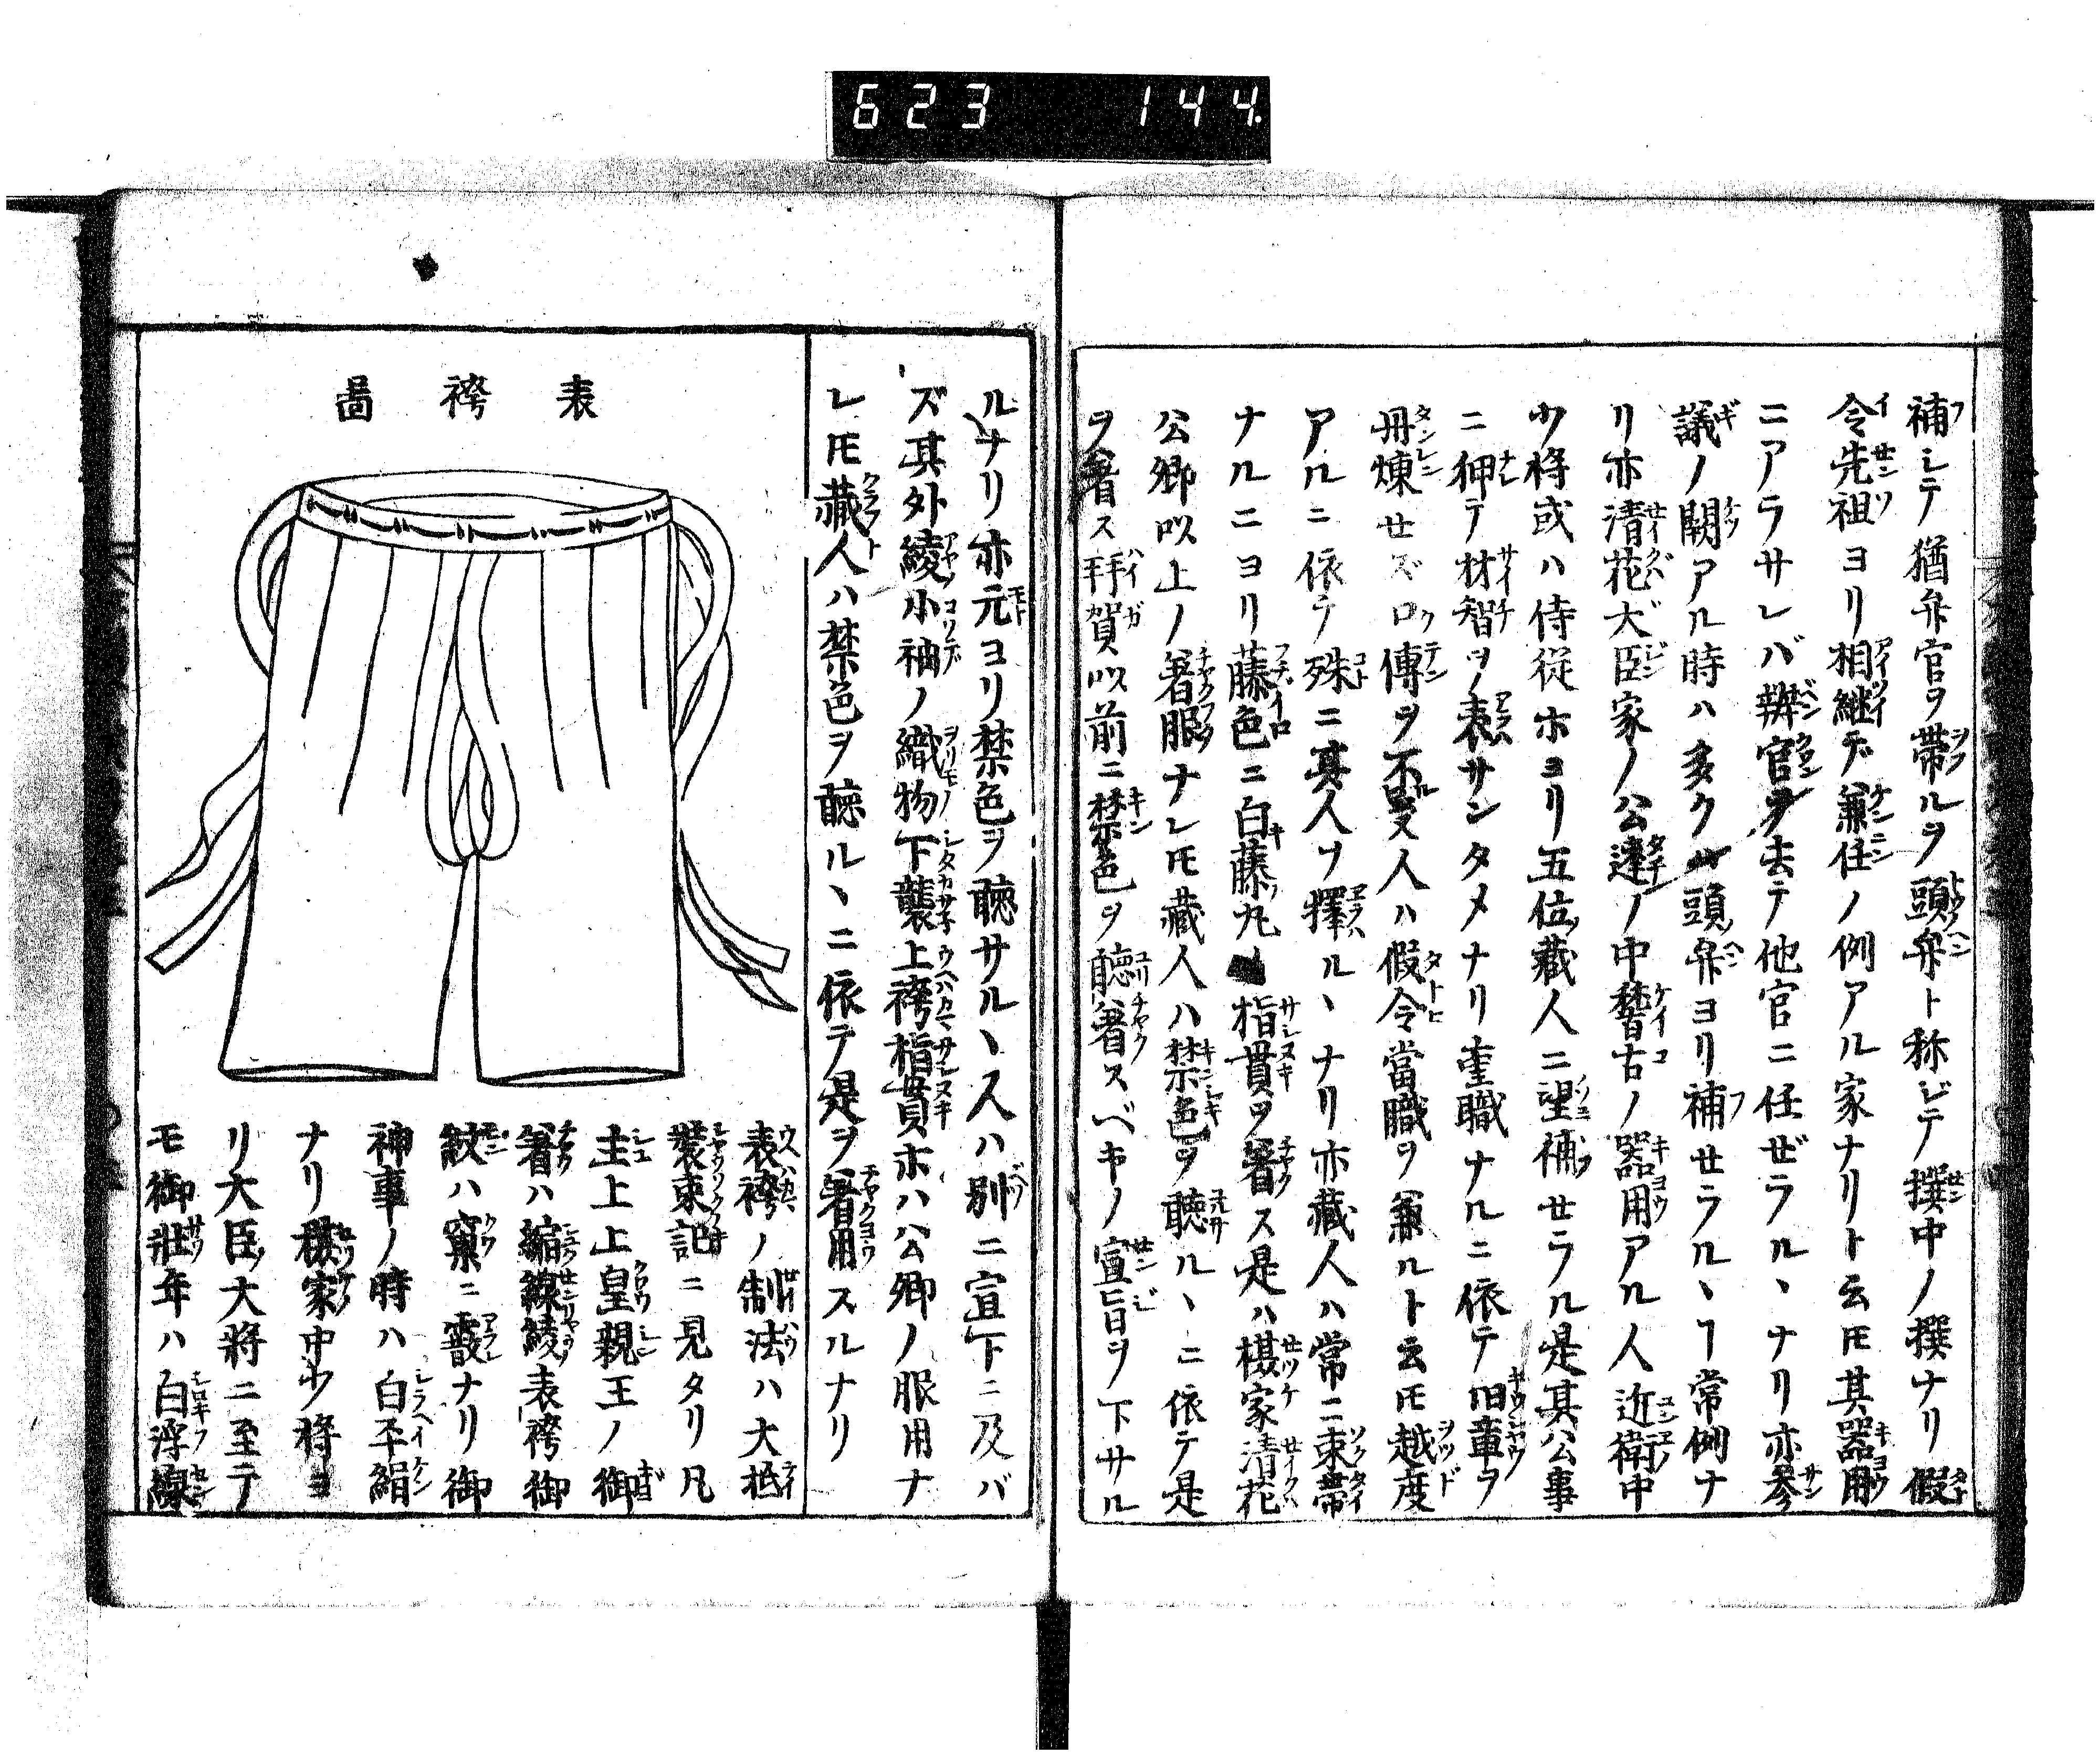 623 144.
補シテ猶弁官ヲ帶ルヲ頭弁ト称ジテ撰中ノ撰ナリ假
令先祖ヨリ相継デ兼任ノ例アル家ナリト云圧其器用
ニアラサレバ辨官ヲ去テ他官ニ任ゼラルヽナリ亦参
議ノ闕アル時ハ多クハ頭弁ヨリ補セラルヽヿ常例ナ
リ亦清花大臣家ノ公達ノ中稽古ノ器用アル人近衛中
少将或ハ侍従ホヨリ五位藏人ニ望補セラル是其公事
ニ狎テ材智ヲ表サンタメナリ重職ナルニ依テ旧章ヲ
丹煉セズロ傳ヲ不受人ハ假令當職ヲ兼ルト云圧越度
アルニ依テ殊ニ其人ヲ擇ルヽナリ亦藏人ハ常ニ束帶
ナルニヨリ藤色ニ白藤丸指貫ヲ著ス是ハ摂家清花
公卿以上ノ著服ナレ圧藏人ハ禁色ヲ聴ルヽニ依テ是
ヲ著ス拝賀以前ニ禁色ヲ聴著スベキノ宣旨ヲ下サル
ルナリ亦元ヨリ禁色ヲ聴サルヽ人ハ別ニ宣下ニ及バ
ズ其外綾小袖ノ織物下襲上袴指貫ホハ公卿ノ服用ナ
レ圧藏人ハ禁色ヲ聴ルヽニ依テ是ヲ著用スルナリ
表袴啚
表袴ノ制法ハ大抵
裝束記ニ見タリ凡
主上上皇親王ノ御
著ハ縮線綾表袴御
紋ハ窠ニ霰ナリ御
神事ノ時ハ白平絹
ナリ摂家中少将ヨ
リ大臣大将ニ至テ
モ御壯年ハ白浮線